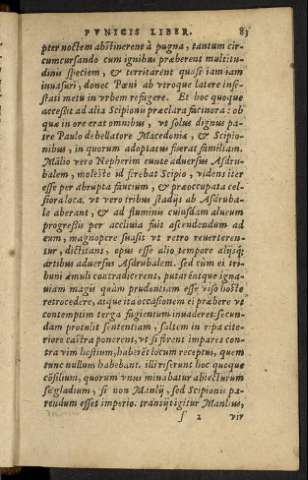 PVNICIS LIBER. 83
pter noctem abstinerent à pugna, tantum cir-
cumcursando cum ignibus præberent multitu-
dinis speciem, & territarent quasi iam iam
inuasuri, donec Pœni ab vtroque latere infe-
stati metu in vrbem refugere. Et hoc quoque
accessit ad alia Scipionis præclara facinora: ob
que in ore erat omnibus, vt solus dignus pa-
tre Paulo debellatore Macedonia, & Scipio-
nibus, in quorum adoptatus fuerat familiam.
Mãlio vero Nepherim eunte aduersus Asdru-
balem, molestè id ferebat Scipio, videns iter
esse per abrupta saucium, & præoccupata cel-
siora loca. vt vero tribus stadijs ab Asdruba-
le aberant, & ad fluminis cuiusdam alueum
progressis per accliuia fuit ascendendum ad
eum, magnopere suasit vt retro reuerteren-
tur, dictitans, opus esse alio tempore alijsq;
artibus aduersus Asdrubalem. sed cùm ei tri-
buni æmuli contradicerent, putarentque igna-
uiam magis quàm prudentiam esse viso hoste
retrocedere, atque ita occasionem ei præbere vt
contemptim terga fugientum inuaderet: secun-
dam protulit sententiam, saltem in ripa cite-
riore castra ponerent, vt si fierent impares con-
tra vim hostium, haberẽt locum receptus, quem
tunc nullum habebant. illi riserunt hoc quoque
cõsilium, quorum vnus minabatur abiecturum
se gladium, si non Manlij, sed Scipionis pa-
rendum esset imperio. transijt igitur Manlius,
f 2 vir